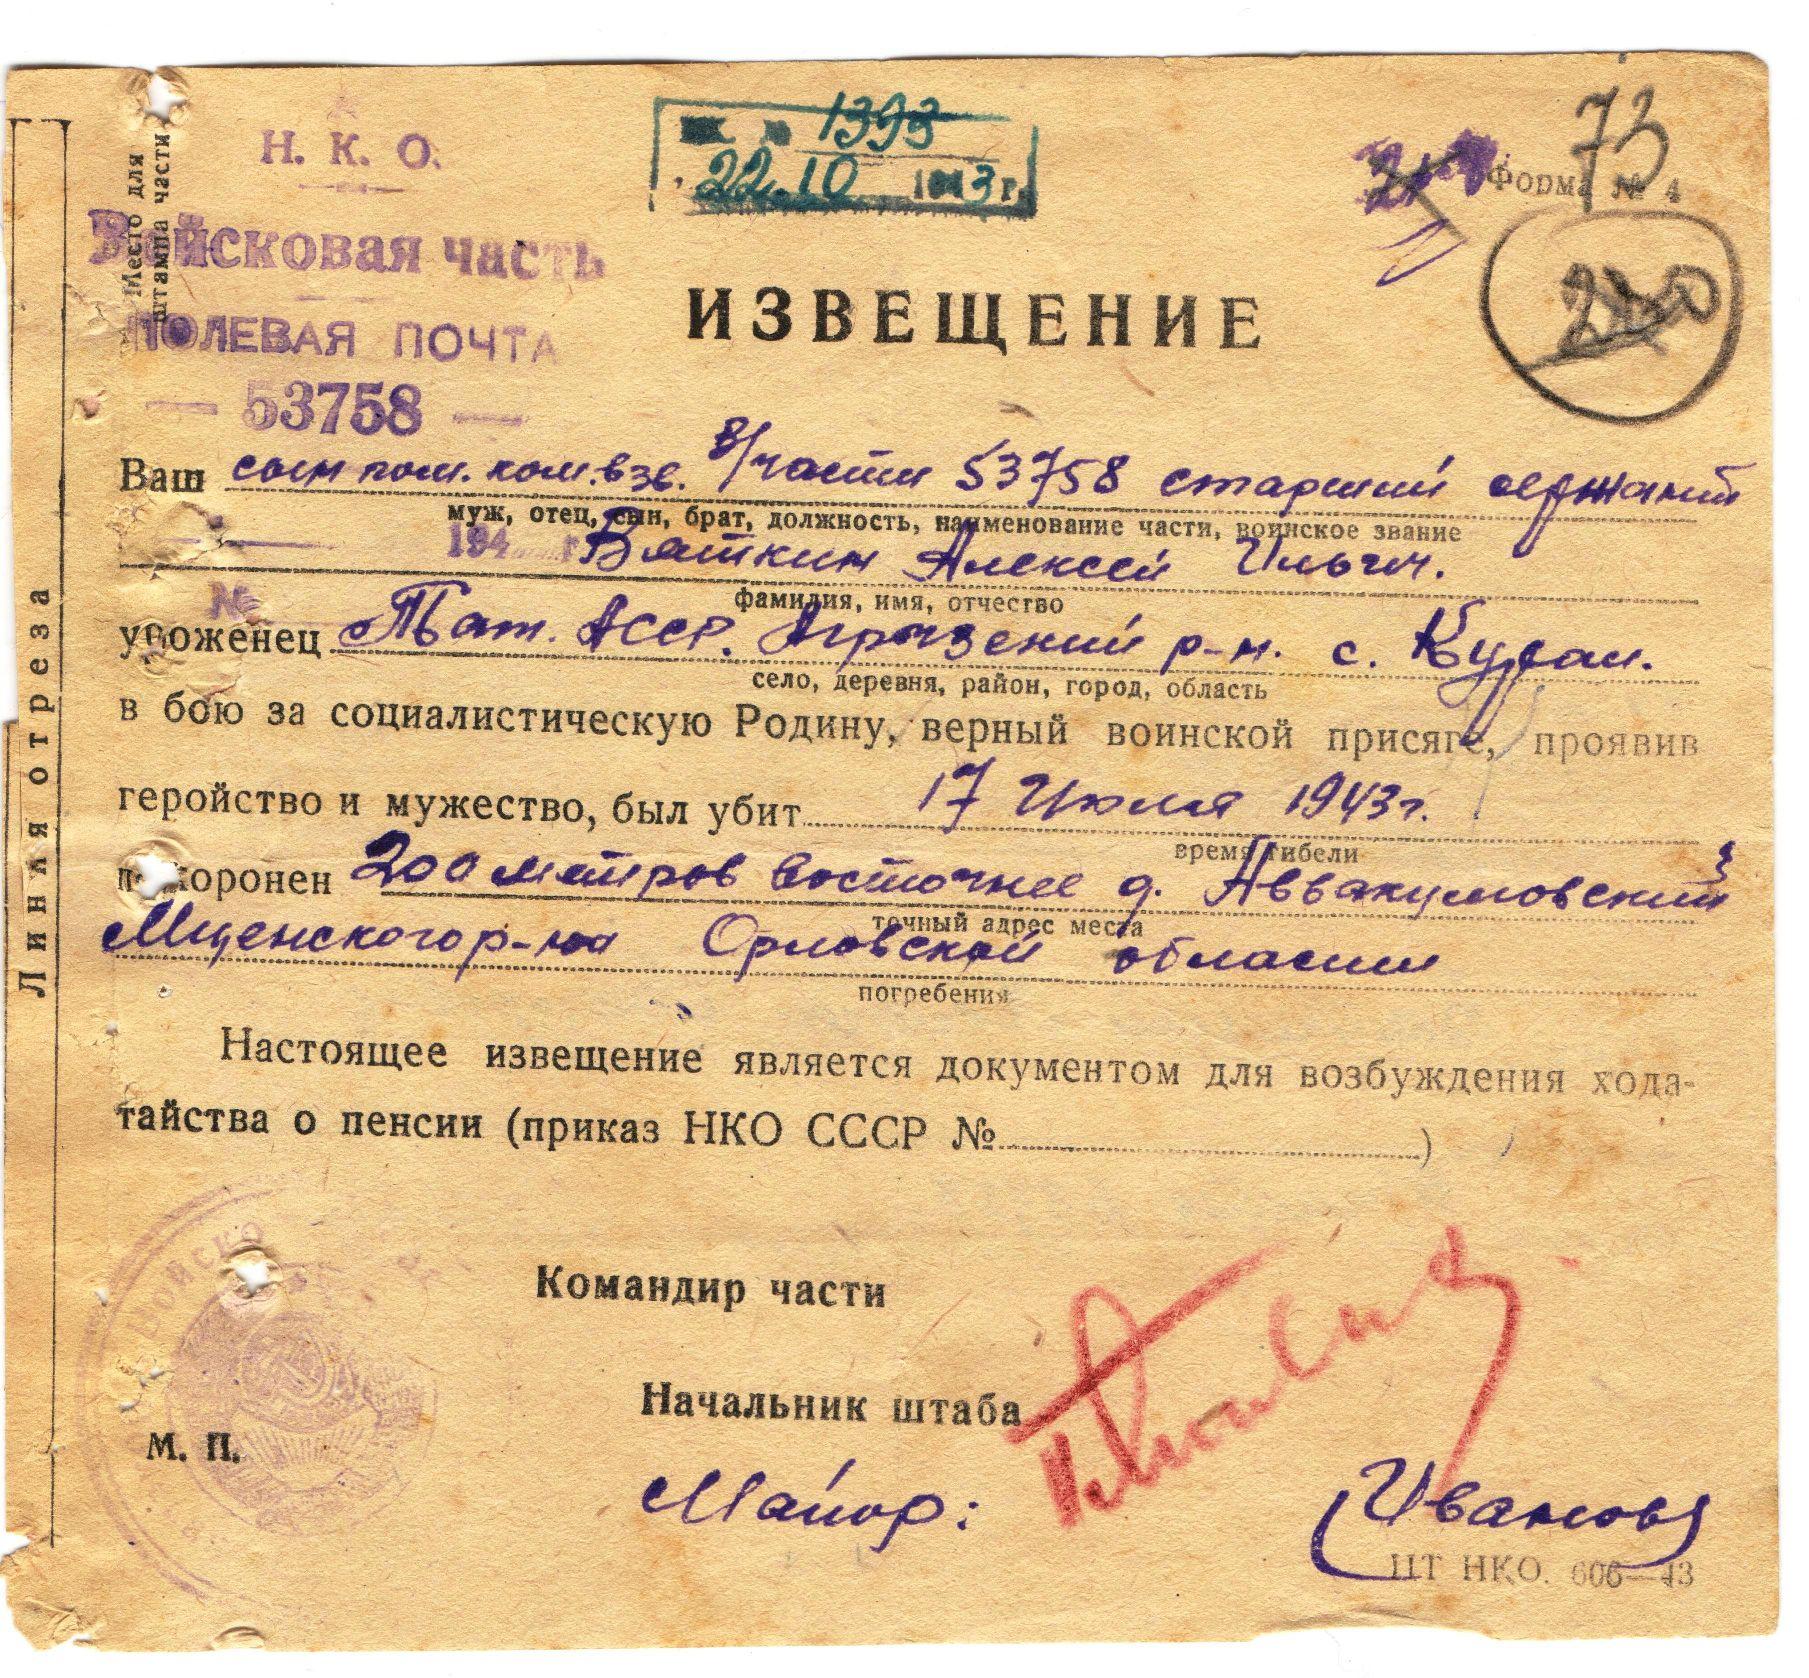 Н. К. О.
Войсковая часть
ПОЛЕВАЯ ПОЧТА
53758
Место для
штампа части
1393
22.10 1943 г.
73
Форма № 4
ИЗВЕЩЕНИЕ
Ваш сын пом. ком. взв. в/части 53758 старший сержант
муж, отец, сын, брат, должность, наименование части, воинское звание
194 г.
Вяткин Алексей Ильич.
фамилия, имя, отчество
№
уроженец Тат. АССР. Агрызский р-н. с. Кулаи.
село, деревня, район, город, область
в бою за социалистическую Родину, верный воинской присяге, проявив
геройство и мужество, был убит 17 Июля 1943 г.
время гибели
похоронен 200 метров восточнее д. Аввакумовский
точный адрес места
Мценского р-на Орловской области
погребения
Настоящее извещение является документом для возбуждения хода-
тайства о пенсии (приказ НКО СССР № )
Командир части
Начальник штаба
М. П.
Майор: Иванов
ЦТ НКО. 606—43
Линия отреза